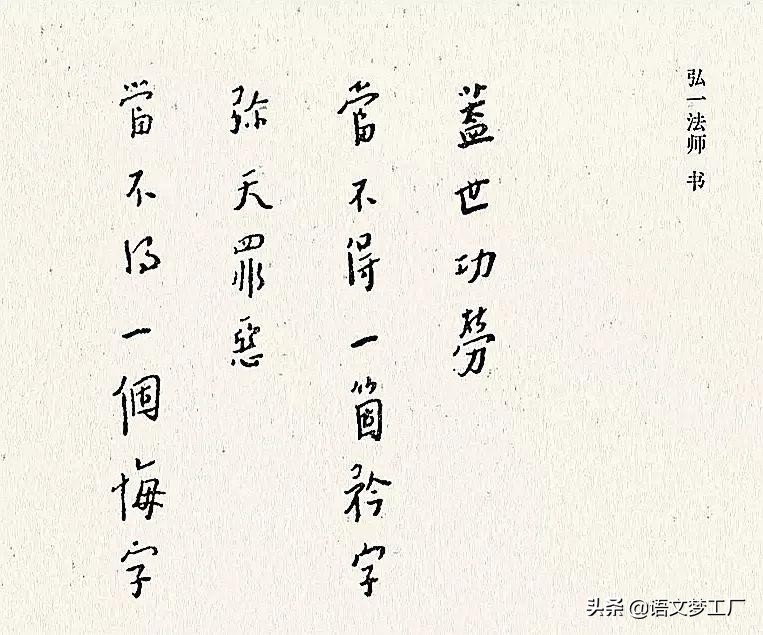 弘一法师 书
蓋世功勞
當不得一箇矜字
弥天罪惡
當不得一個悔字
头条 @语文梦工厂